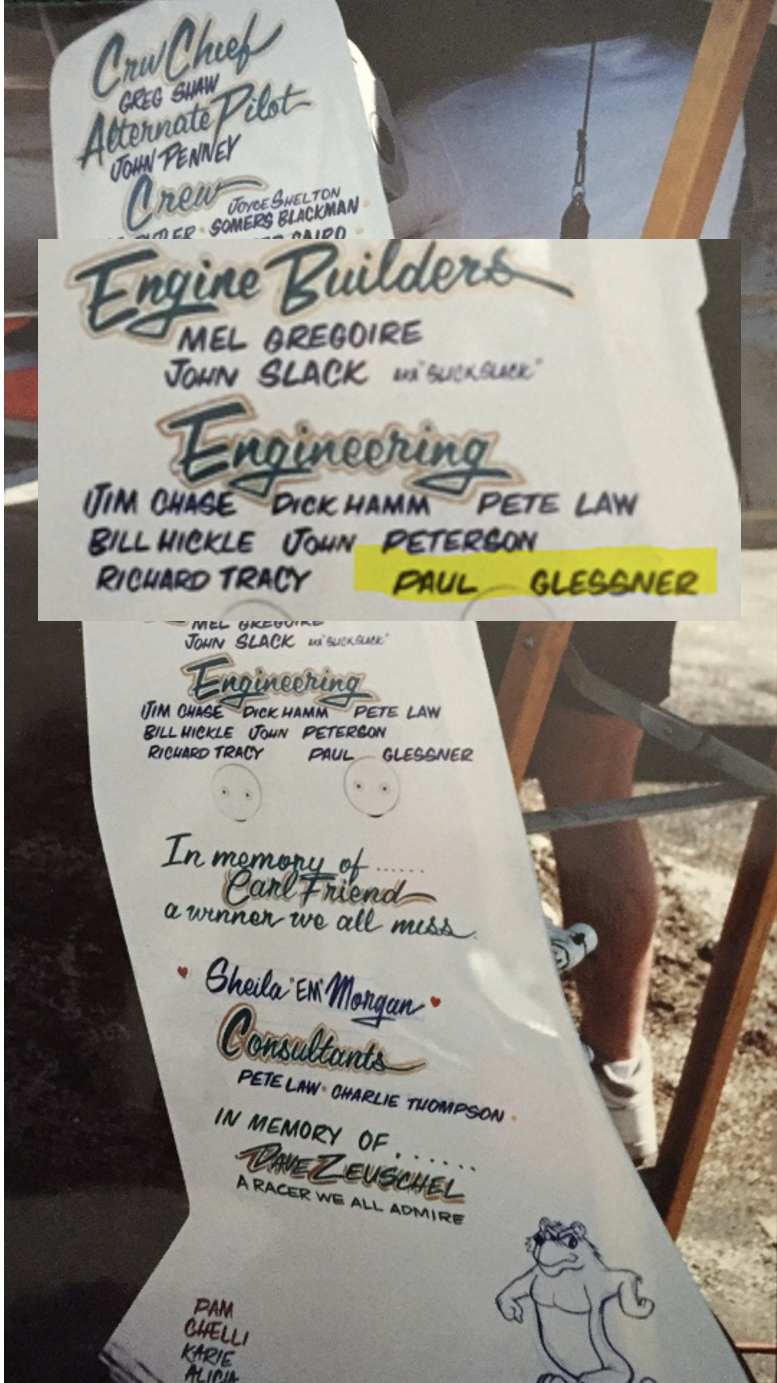 Crw Chief
GREG SHAW
Alternate Pilot
JOHN PENNEY
Crew JOYCE SHELTON
SOMERS BLACKMAN
Engine Builders
MEL GREGOIRE
JOHN SLACK AKA "SLICK SLACK"
Engineering
JIM CHASE DICK HAMM PETE LAW
BILL HICKLE JOHN PETERSON
RICHARD TRACY PAUL GLESSNER
MEL GREGOIRE
JOHN SLACK AKA "SLICK SLACK"
Engineering
JIM CHASE DICK HAMM PETE LAW
BILL HICKLE JOHN PETERSON
RICHARD TRACY PAUL GLESSNER
In memory of ......
Carl Friend
a winner we all miss
Sheila "EM" Morgan
Consultants
PETE LAW • CHARLIE THOMPSON •
IN MEMORY OF ......
DAVE ZEUSCHEL
A RACER WE ALL ADMIRE
PAM
CHELLI
KARIE
ALICIA